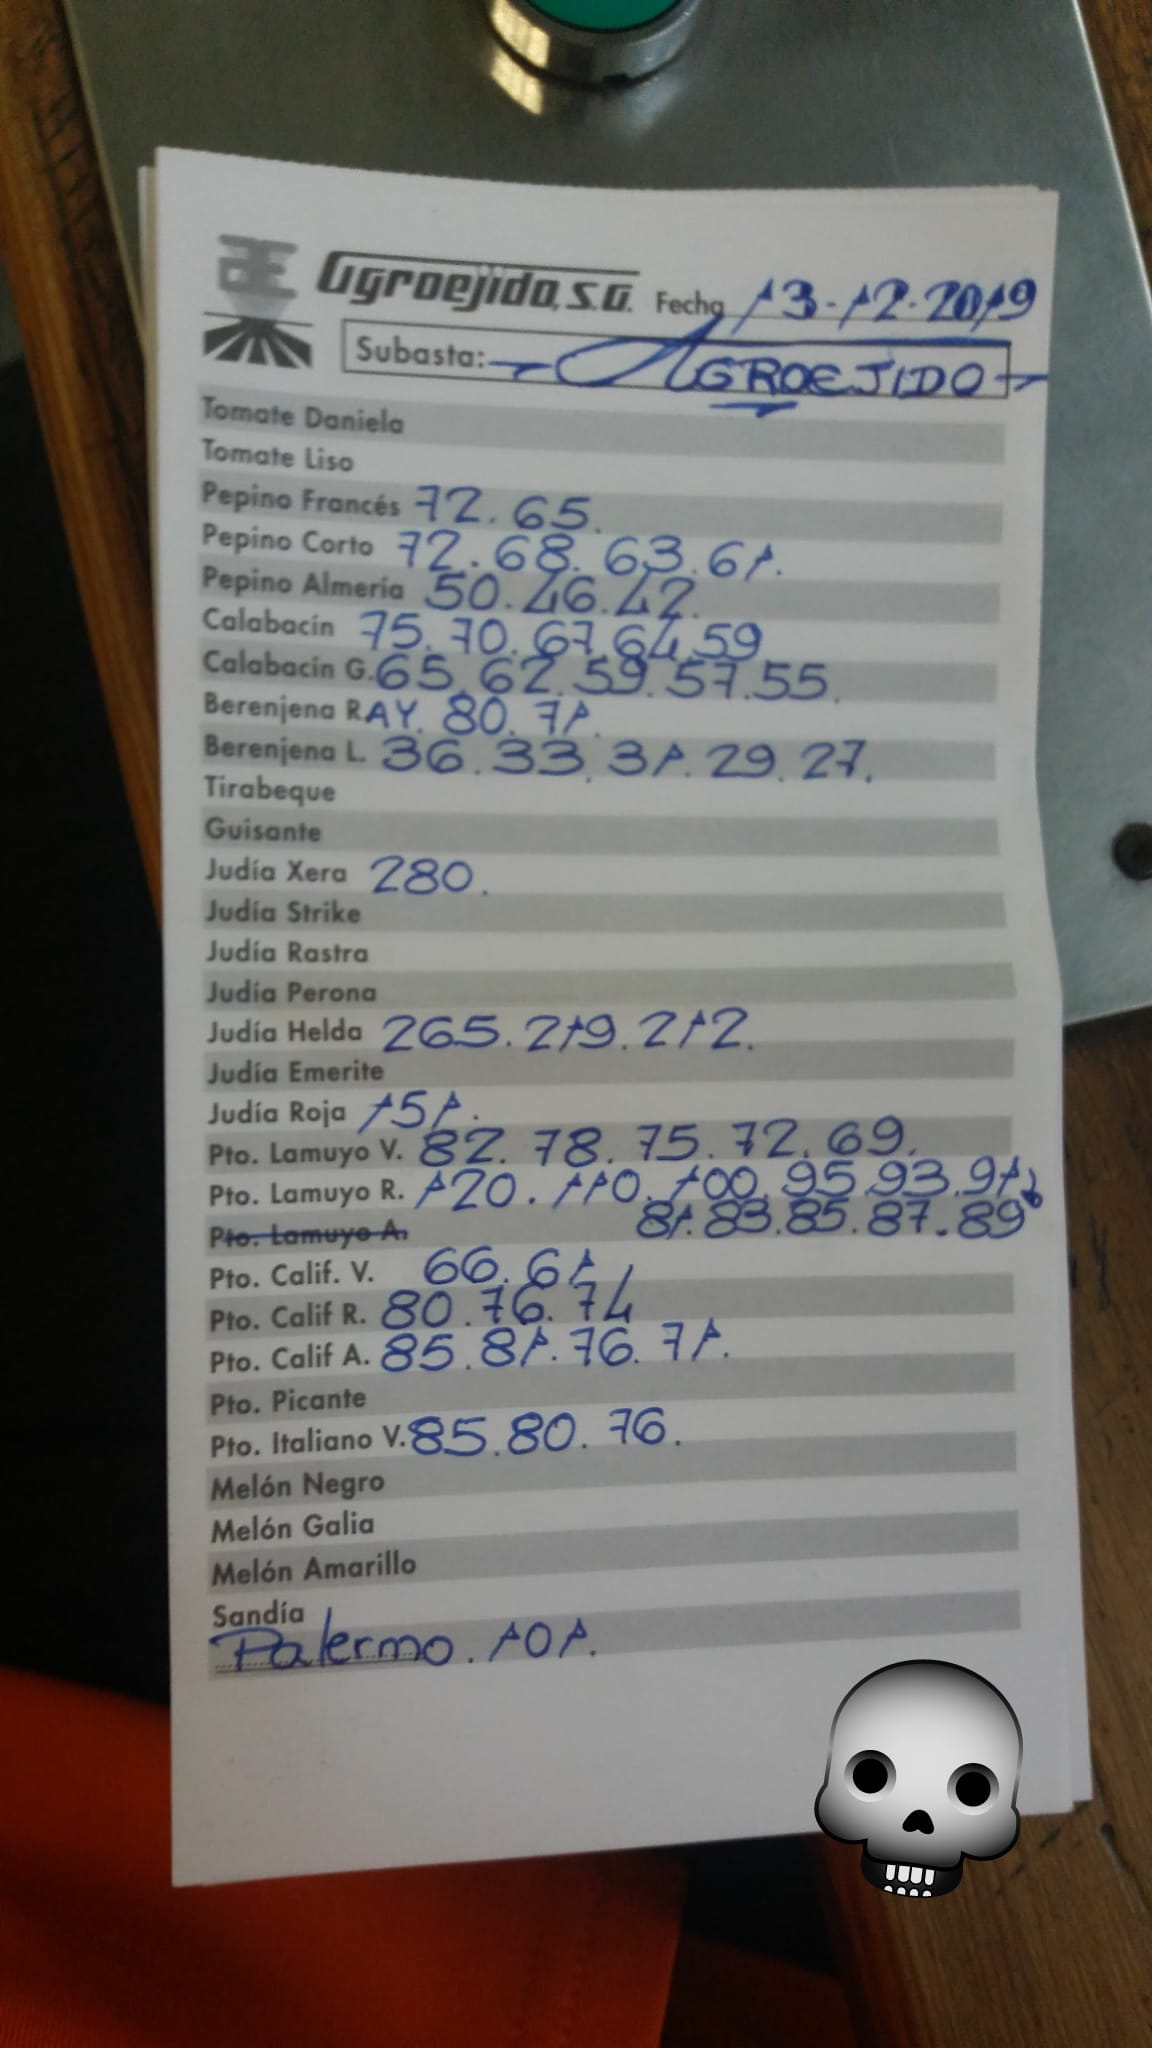 Agroejido, S.A. Fecha 13-12-2019
Subasta: AGROEJIDO
Tomate Daniela
Tomate Liso
Pepino Francés 72. 65.
Pepino Corto 72. 68. 63. 61.
Pepino Almería 50. 46. 42.
Calabacín 75. 70. 67. 64. 59
Calabacín G. 65. 62. 59. 57. 55.
Berenjena RAY. 80. 71.
Berenjena L. 36. 33. 31. 29. 27.
Tirabeque
Guisante
Judía Xera 280.
Judía Strike
Judía Rastra
Judía Perona
Judía Helda 265. 219. 212.
Judía Emerite
Judía Roja 151.
Pto. Lamuyo V. 82. 78. 75. 72. 69.
Pto. Lamuyo R. 120. 110. 100. 95. 93. 91
Pto. Lamuyo A. 81. 83. 85. 87. 89
Pto. Calif. V. 66. 61
Pto. Calif R. 80. 76. 74
Pto. Calif A. 85. 81. 76. 71.
Pto. Picante
Pto. Italiano V. 85. 80. 76.
Melón Negro
Melón Galia
Melón Amarillo
Sandía
Palermo. 101.